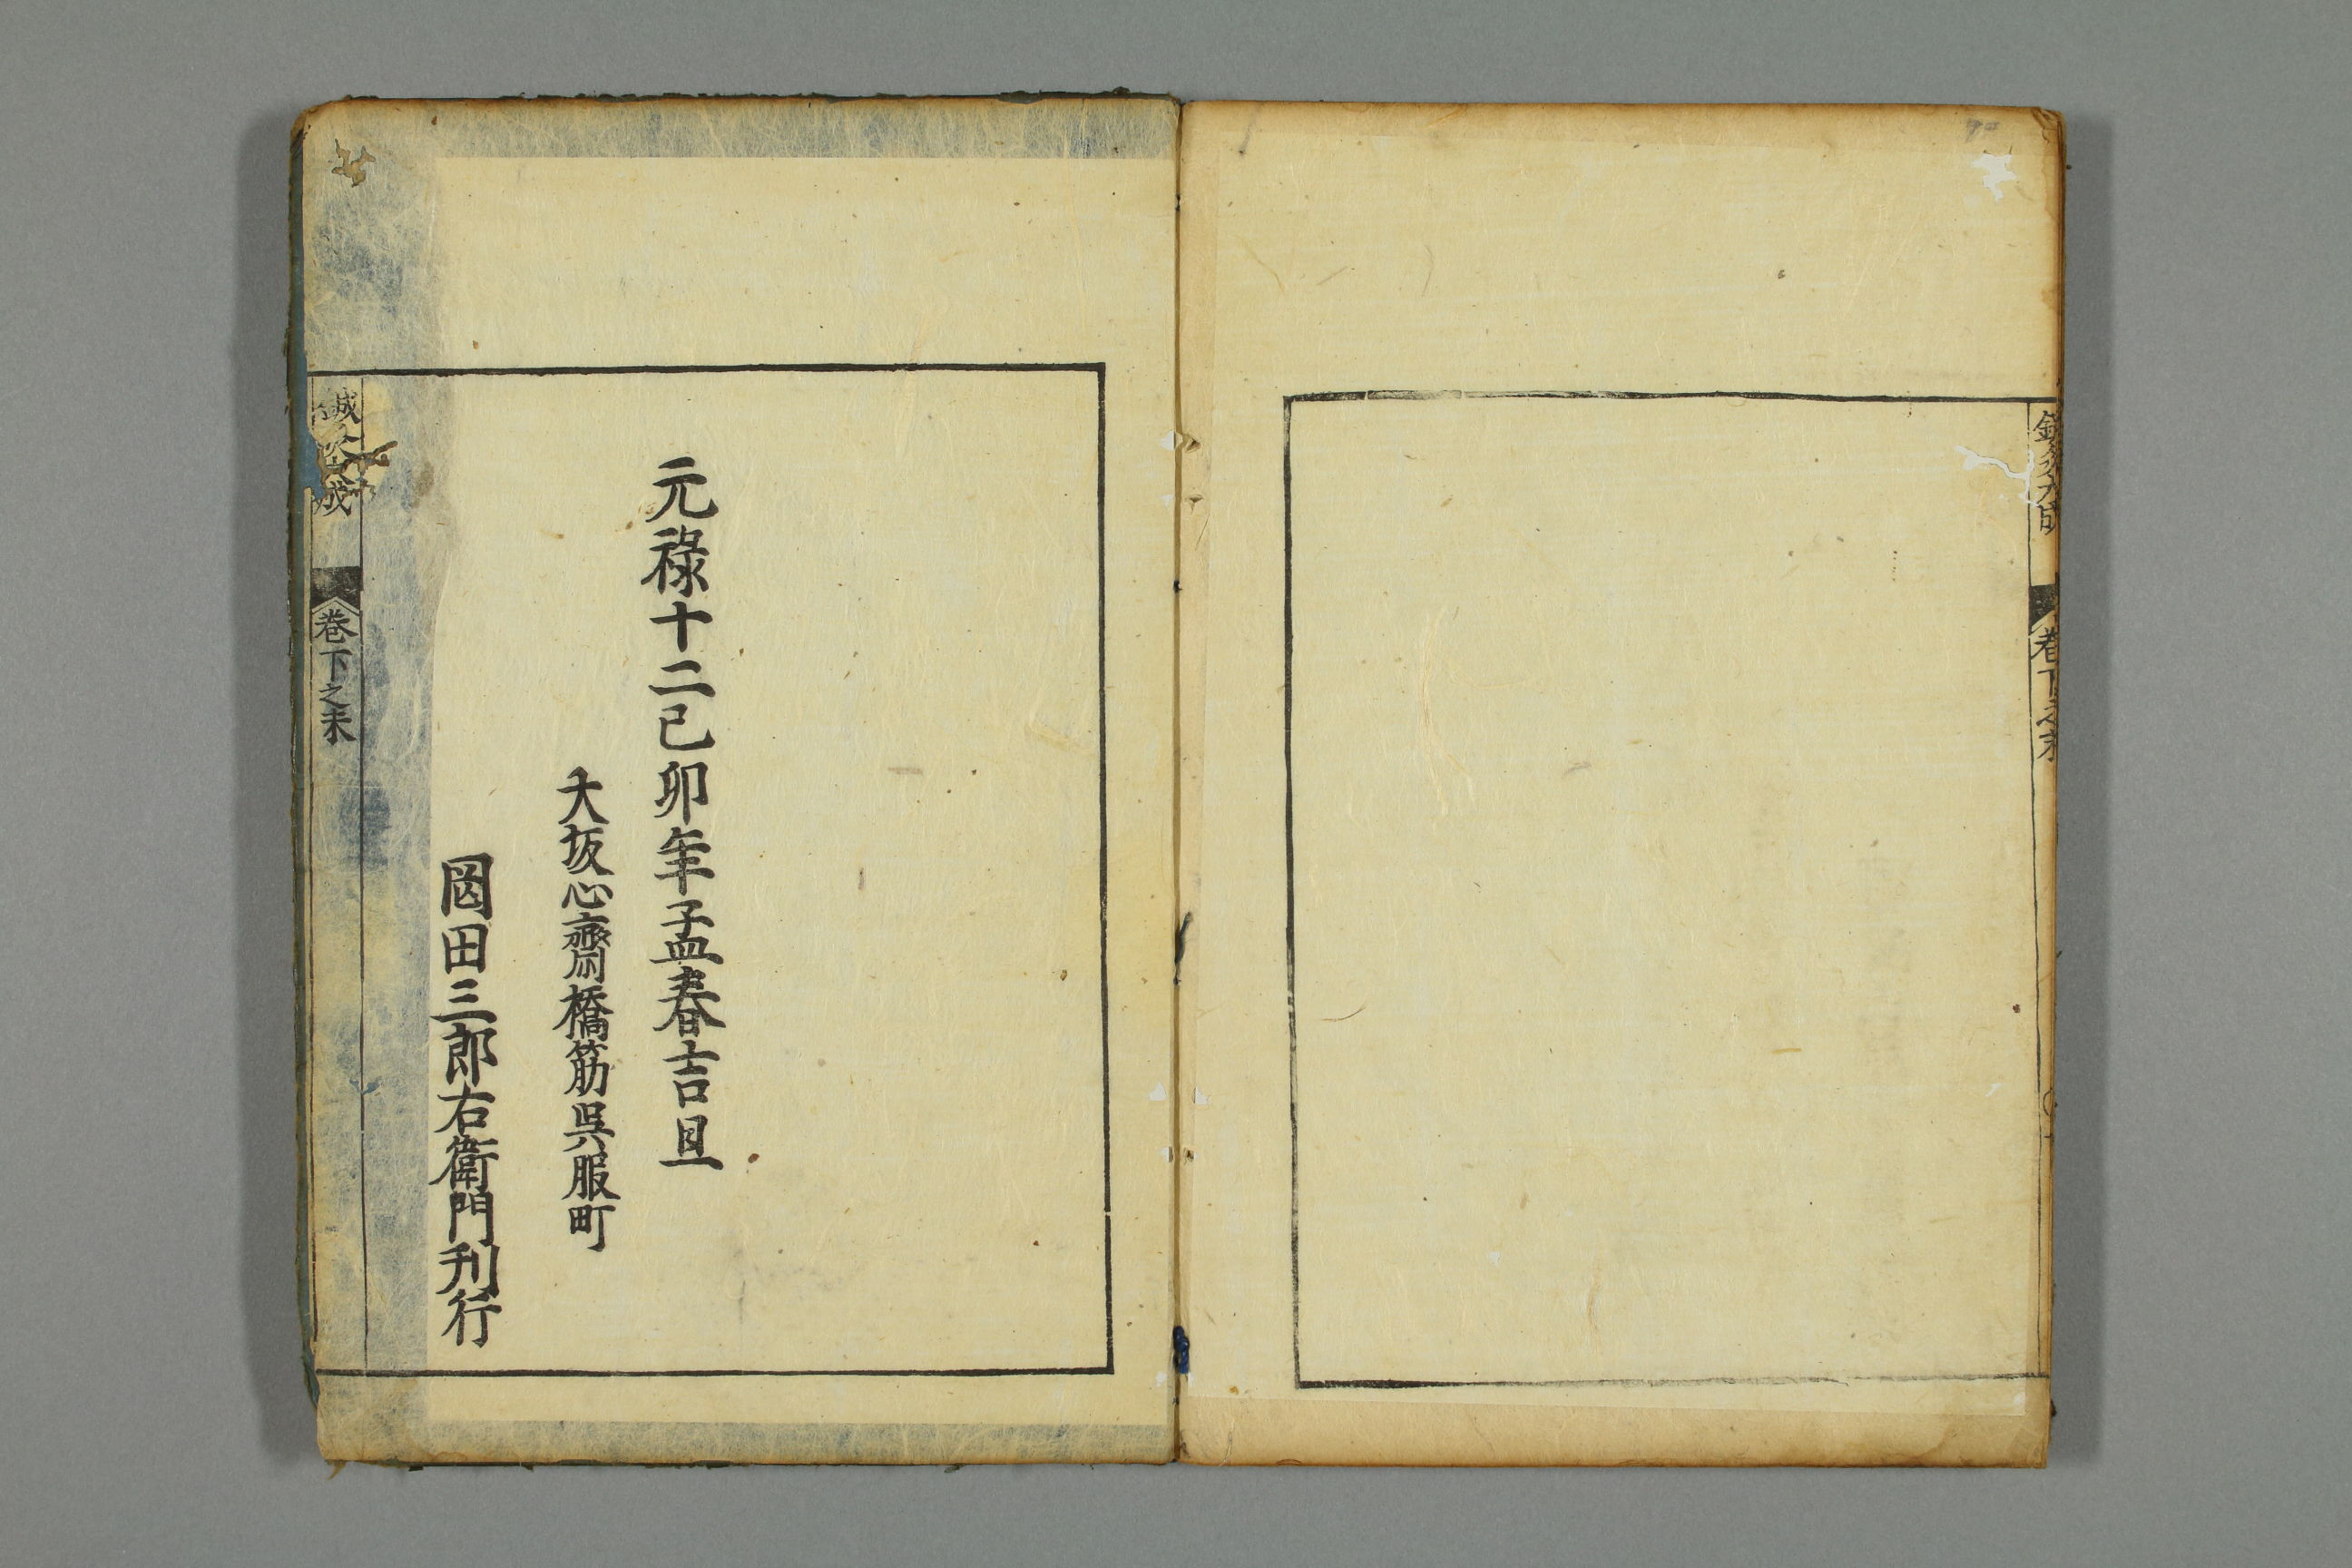 卷下之末
元祿十二己卯年孟春吉旦
大坂心齋橋筋呉服町
岡田三郎右衛門刊行
成
卷下之末